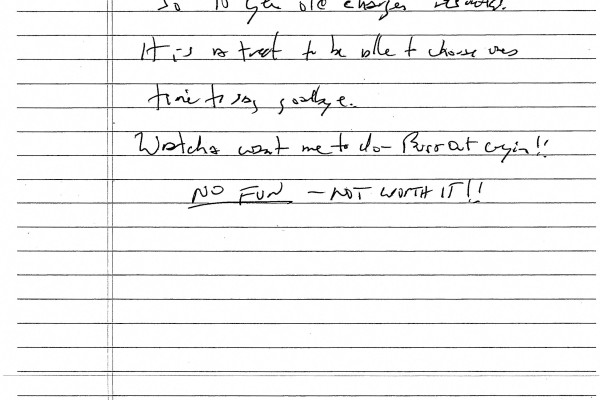 So 10 year old charges
It is a treat to be able to choose ones
time to say goodbye.
Watcha want me to do - Burst out cryin!!
NO FUN - NOT WORTH IT!!